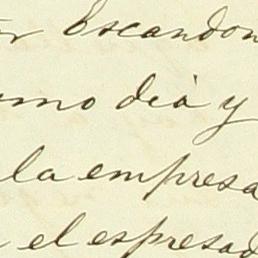 Escandon
smo dia y
la empresa
el espresad